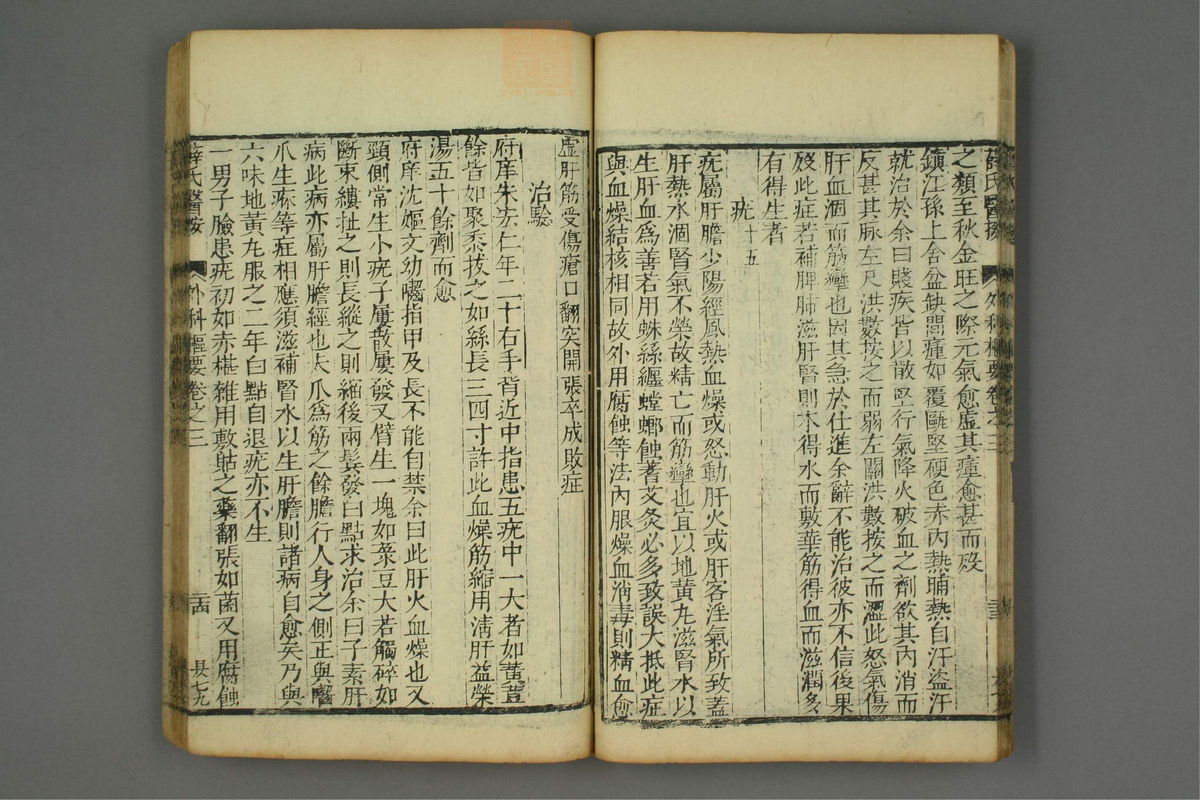 薛氏醫按 外科樞要卷之三
之類至秋金旺之際元氣愈虛其瘇愈甚而歿
鎮江孫上舍盆缺間瘇如覆甌堅硬色赤內熱晡熱自汗盜汗
就治於余曰賤疾皆以散堅行氣降火破血之劑欲其內消而
反甚其脉左尺洪數按之而弱左關洪數按之而濇此怒氣傷
肝血涸而筋攣也因其急於仕進余辭不能治彼亦不信後果
歿此症若補脾肺滋肝腎則木得水而敷華筋得血而滋潤多
有得生者
疣 十五
疣屬肝膽少陽經風熱血燥或怒動肝火或肝客淫氣所致蓋
肝熱水涸腎氣不榮故精亡而筋攣也宜以地黃丸滋腎水以
生肝血爲善若用蛛絲纏螳螂蝕著艾灸必多致誤大抵此症
與血燥結核相同故外用腐蝕等法內服燥血消毒則精血愈
虛肝筋受傷瘡口翻突開張卒成敗症
治驗
府庠朱宏仁年二十右手背近中指患五疣中一大者如黃荳
餘皆如聚黍拔之如絲長三四寸許此血燥筋縮用清肝益榮
湯五十餘劑而愈
府庠沈姬文幼囓指甲及長不能自禁余曰此肝火血燥也又
頸側常生小疣子屢散屢發又臂生一塊如菉豆大若觸碎如
斷束縷扯之則長縱之則縮後兩鬂發白點求治余曰子素肝
病此病亦屬肝膽經也夫爪爲筋之餘膽行人身之側正與囓
爪生疹等症相應須滋補腎水以生肝膽則諸病自愈矣乃與
六味地黃丸服之二年白點自退疣亦不生
一男子臉患疣初如赤椹雜用敷貼之藥翻張如菌又用腐蝕
薛氏醫按 外科樞要卷之三 長七九